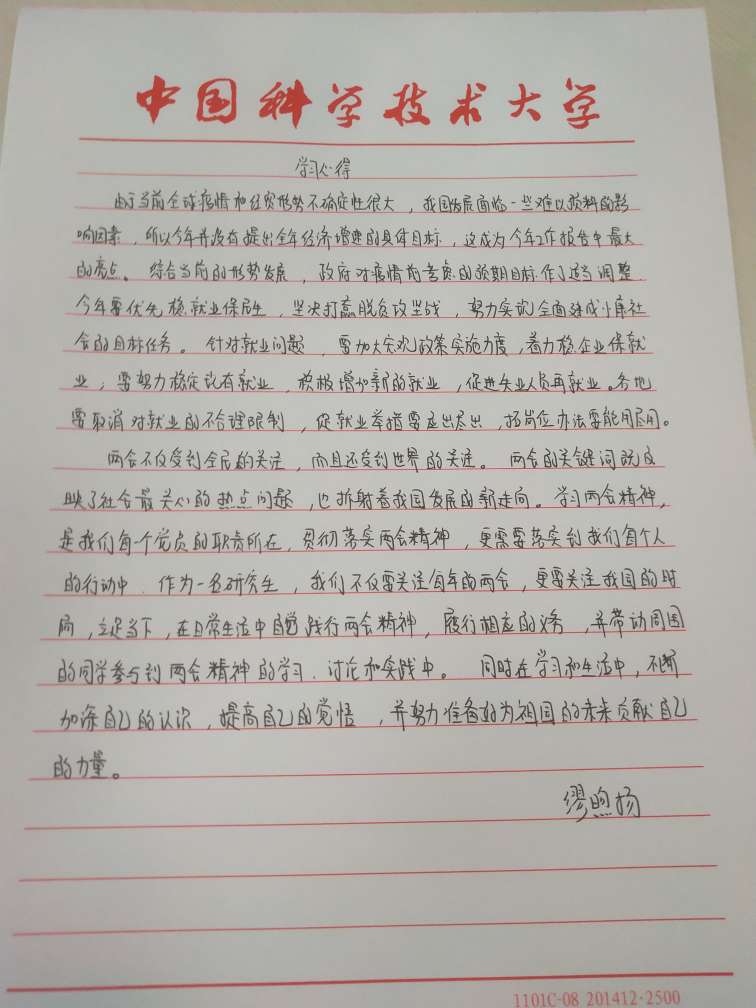 中国科学技术大学
学习心得
由于当前全球疫情和经贸形势不确定性很大，我国发展面临一些难以预料的影
响因素，所以今年并没有提出全年经济增速的具体目标，这成为今年工作报告中最大
的亮点。综合当前的形势发展，政府对疫情前考虑的预期目标作了适当调整.
今年要优先稳就业保民生，坚决打赢脱贫攻坚战，努力实现全面建成小康社
会的目标任务。针对就业问题，要加大宏观政策实施力度，着力稳企业保就
业，要努力稳定现有就业，积极增加新的就业，促进失业人员再就业。各地
要取消对就业的不合理限制，促就业举措要应出尽出，拓岗位办法要能用尽用。
两会不仅受到全民的关注，而且还受到世界的关注。两会的关键词既反
映了社会最关心的热点问题，也折射着我国发展的新走向。学习两会精神，
是我们每一个党员的职责所在，贯彻落实两会精神，更需要落实到我们每个人
的行动中.作为一名研究生，我们不仅要关注每年的两会，更要关注我国的时
局，立足当下，在日常生活中自觉践行两会精神，履行相应的义务，并带动周围
的同学参与到两会精神的学习、讨论和实践中。同时在学习和生活中，不断
加深自己的认识，提高自己的觉悟，并努力准备好为祖国的未来贡献自己
的力量。
缪煦扬
1101C-08 201412·2500